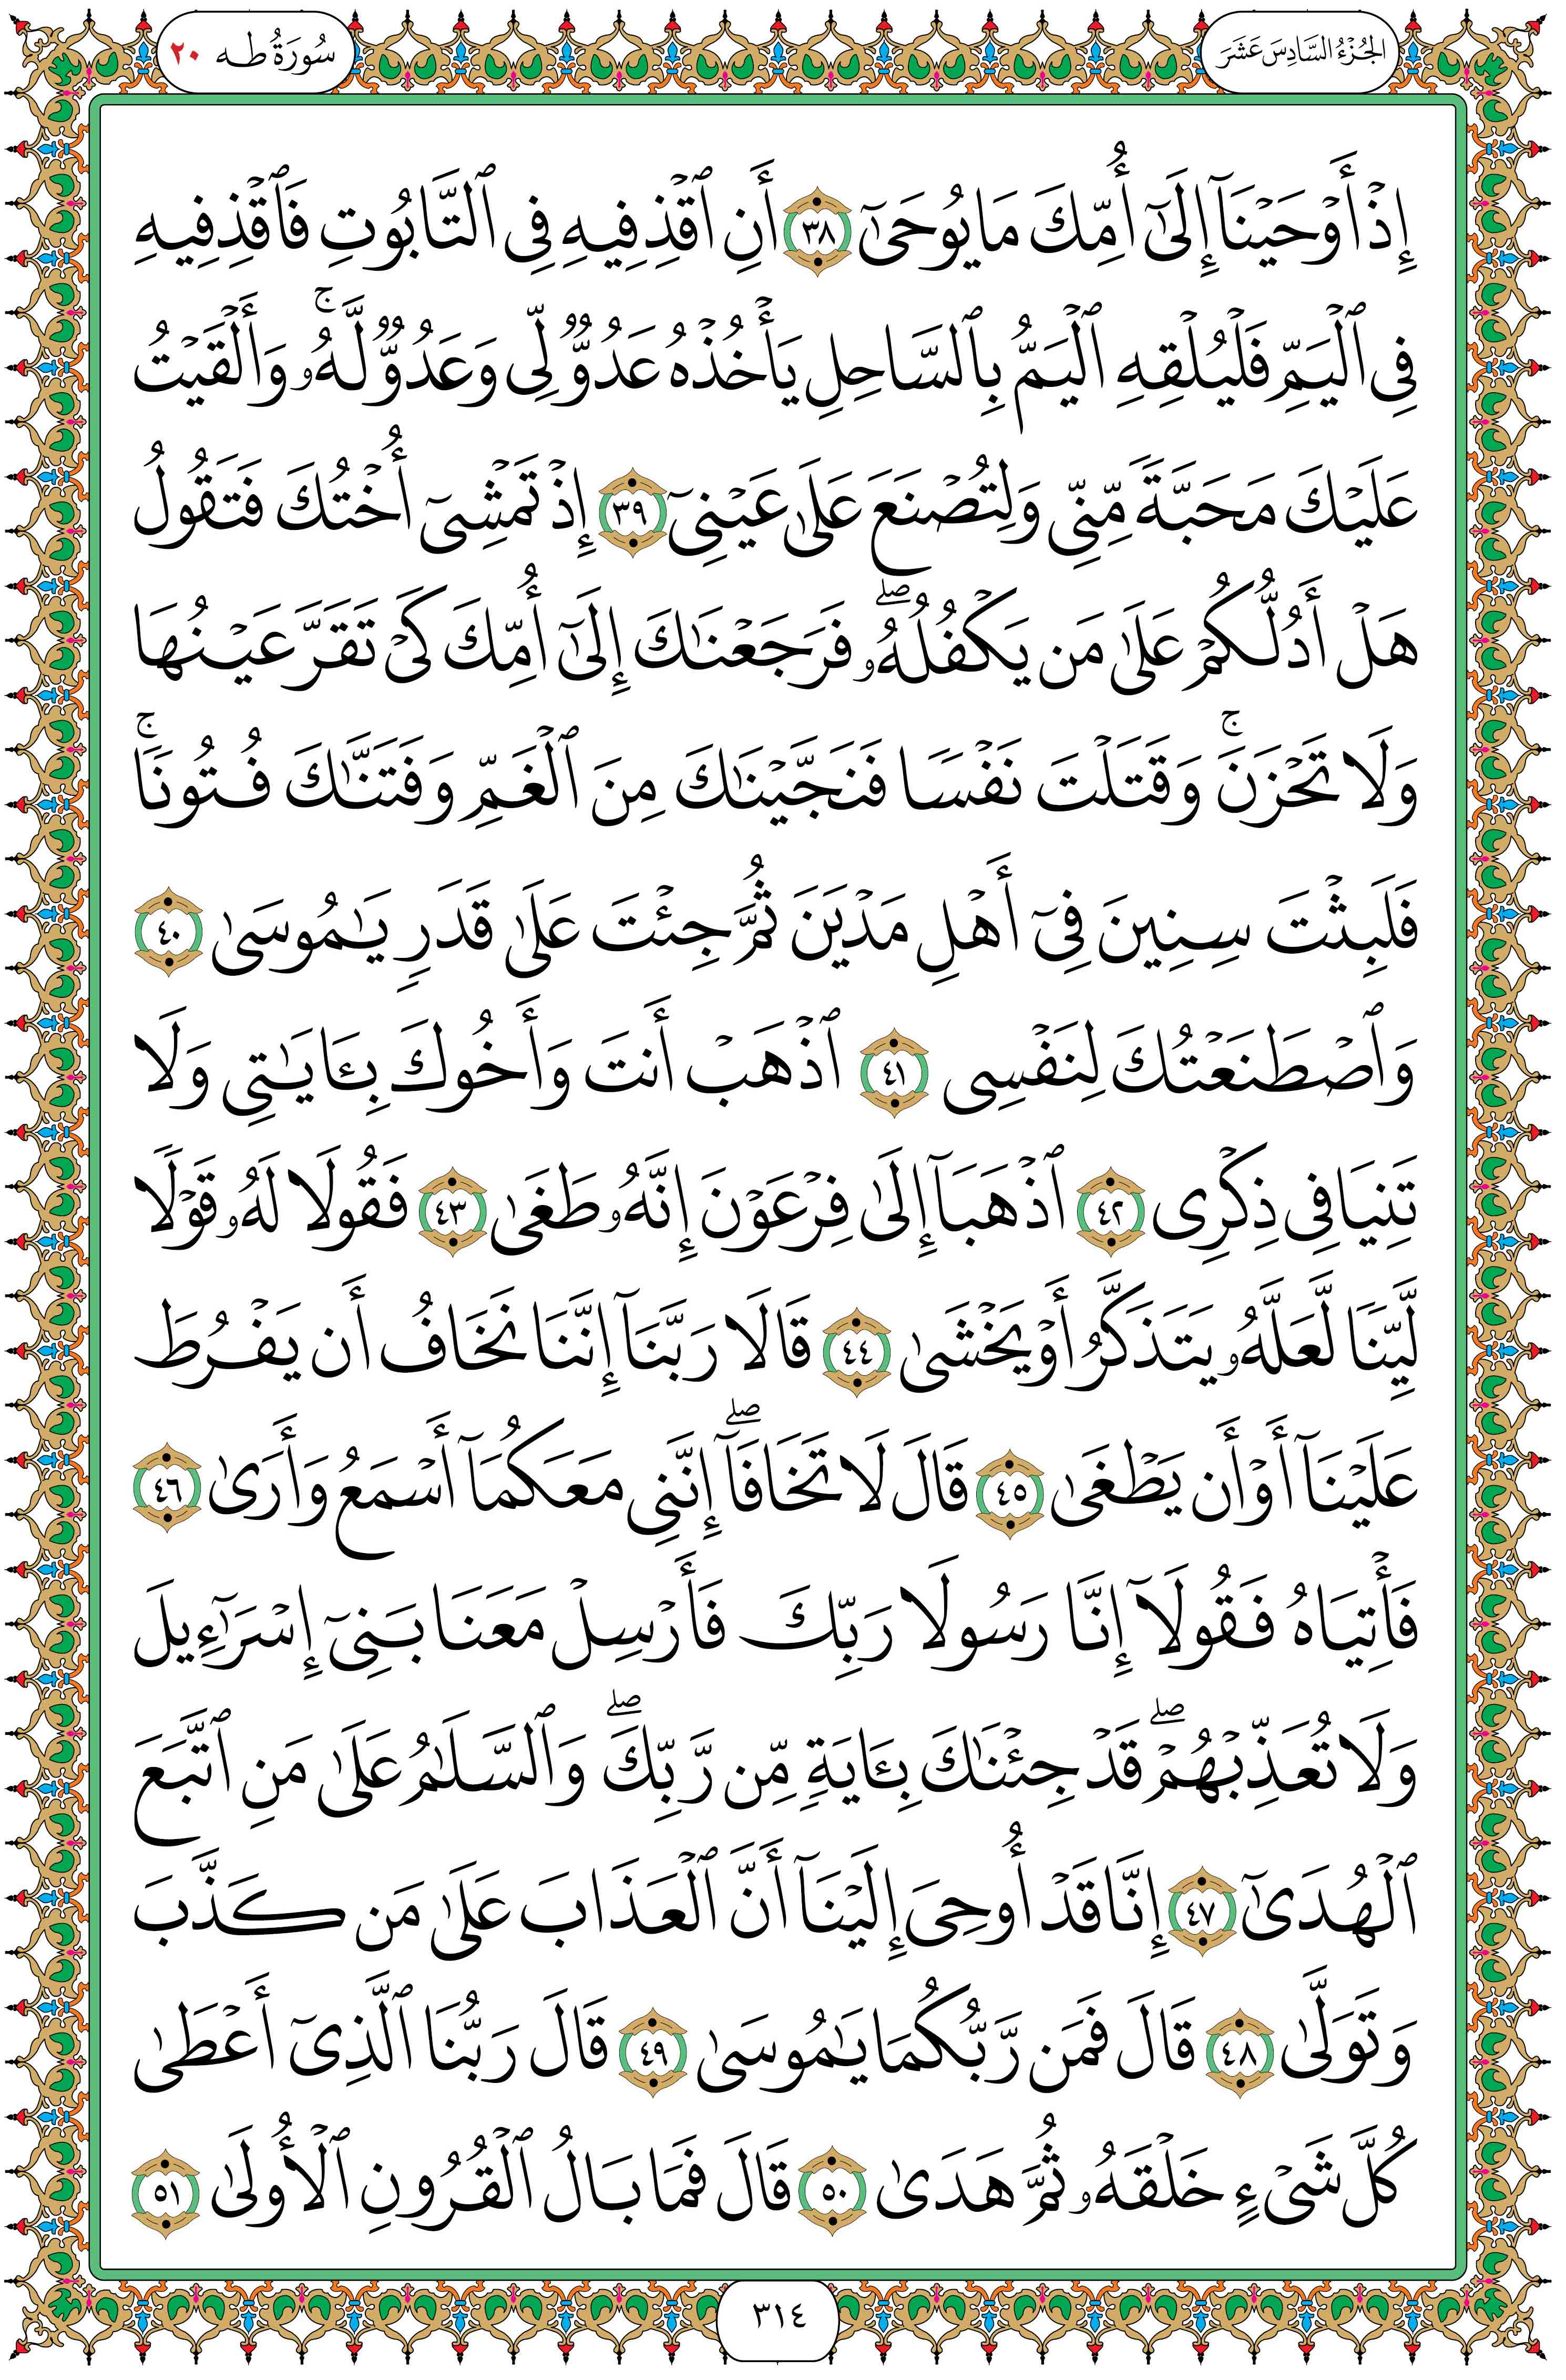 سُورَةُ طه ٢٠
الجُزْءُ السَّادِسَ عَشَرَ
إِذۡ أَوۡحَيۡنَآ إِلَىٰٓ أُمِّكَ مَا يُوحَىٰٓ ٣٨ أَنِ ٱقۡذِفِيهِ فِي ٱلتَّابُوتِ فَٱقۡذِفِيهِ
فِي ٱلۡيَمِّ فَلۡيُلۡقِهِ ٱلۡيَمُّ بِٱلسَّاحِلِ يَأۡخُذۡهُ عَدُوّٞ لِّي وَعَدُوّٞ لَّهُۥۚ وَأَلۡقَيۡتُ
عَلَيۡكَ مَحَبَّةٗ مِّنِّي وَلِتُصۡنَعَ عَلَىٰ عَيۡنِيٓ ٣٩ إِذۡ تَمۡشِيٓ أُخۡتُكَ فَتَقُولُ
هَلۡ أَدُلُّكُمۡ عَلَىٰ مَن يَكۡفُلُهُۥۖ فَرَجَعۡنَٰكَ إِلَىٰٓ أُمِّكَ كَيۡ تَقَرَّ عَيۡنُهَا
وَلَا تَحۡزَنَۚ وَقَتَلۡتَ نَفۡسٗا فَنَجَّيۡنَٰكَ مِنَ ٱلۡغَمِّ وَفَتَنَّٰكَ فُتُونٗاۚ
فَلَبِثۡتَ سِنِينَ فِيٓ أَهۡلِ مَدۡيَنَ ثُمَّ جِئۡتَ عَلَىٰ قَدَرٖ يَٰمُوسَىٰ ٤٠
وَٱصۡطَنَعۡتُكَ لِنَفۡسِي ٤١ ٱذۡهَبۡ أَنتَ وَأَخُوكَ بِـَٔايَٰتِي وَلَا
تَنِيَا فِي ذِكۡرِي ٤٢ ٱذۡهَبَآ إِلَىٰ فِرۡعَوۡنَ إِنَّهُۥ طَغَىٰ ٤٣ فَقُولَا لَهُۥ قَوۡلٗا
لَّيِّنٗا لَّعَلَّهُۥ يَتَذَكَّرُ أَوۡ يَخۡشَىٰ ٤٤ قَالَا رَبَّنَآ إِنَّنَا نَخَافُ أَن يَفۡرُطَ
عَلَيۡنَآ أَوۡ أَن يَطۡغَىٰ ٤٥ قَالَ لَا تَخَافَآۖ إِنَّنِي مَعَكُمَآ أَسۡمَعُ وَأَرَىٰ ٤٦
فَأۡتِيَاهُ فَقُولَآ إِنَّا رَسُولَا رَبِّكَ فَأَرۡسِلۡ مَعَنَا بَنِيٓ إِسۡرَٰٓءِيلَ
وَلَا تُعَذِّبۡهُمۡۖ قَدۡ جِئۡنَٰكَ بِـَٔايَةٖ مِّن رَّبِّكَۖ وَٱلسَّلَٰمُ عَلَىٰ مَنِ ٱتَّبَعَ
ٱلۡهُدَىٰٓ ٤٧ إِنَّا قَدۡ أُوحِيَ إِلَيۡنَآ أَنَّ ٱلۡعَذَابَ عَلَىٰ مَن كَذَّبَ
وَتَوَلَّىٰ ٤٨ قَالَ فَمَن رَّبُّكُمَا يَٰمُوسَىٰ ٤٩ قَالَ رَبُّنَا ٱلَّذِيٓ أَعۡطَىٰ
كُلَّ شَيۡءٍ خَلۡقَهُۥ ثُمَّ هَدَىٰ ٥٠ قَالَ فَمَا بَالُ ٱلۡقُرُونِ ٱلۡأُولَىٰ ٥١
٣١٤